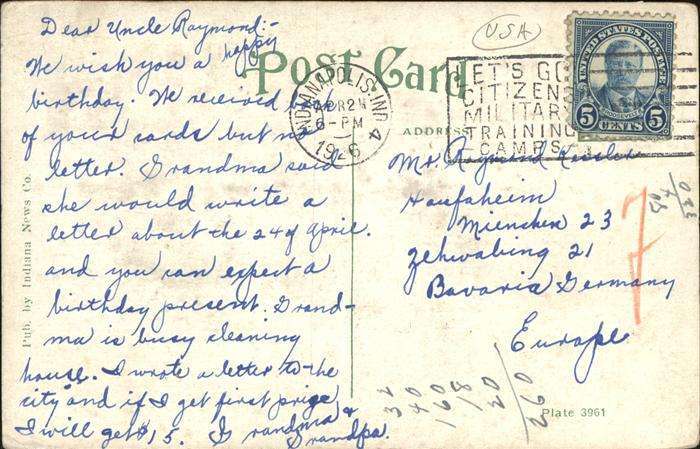 Dear Uncle Raymond:-
We wish you a happy
birthday. We received both
of your cards but no
letter. Grandma said
she would write a
letter about the 24 of April.
and you can expect a
birthday present. Grand-
ma is busy cleaning
house. I wrote a letter to the
city and if I get first prize
I will get $15. Grandma &
Grandpa.
Post Card
ADDRESS
USA
INDIANAPOLIS, IND.
APR 2
6-PM
1926
4
LET'S GO
CITIZENS
MILITARY
TRAINING
CAMPS
UNITED STATES POSTAGE
ROOSEVELT
5 CENTS 5
Mr. Raymond Kessler
Haufaheim
Muenchen 23
Bavaria Germany
Europe
7
32
40
160
18
20
260
Plate 3961
Pub. by Indiana News Co.